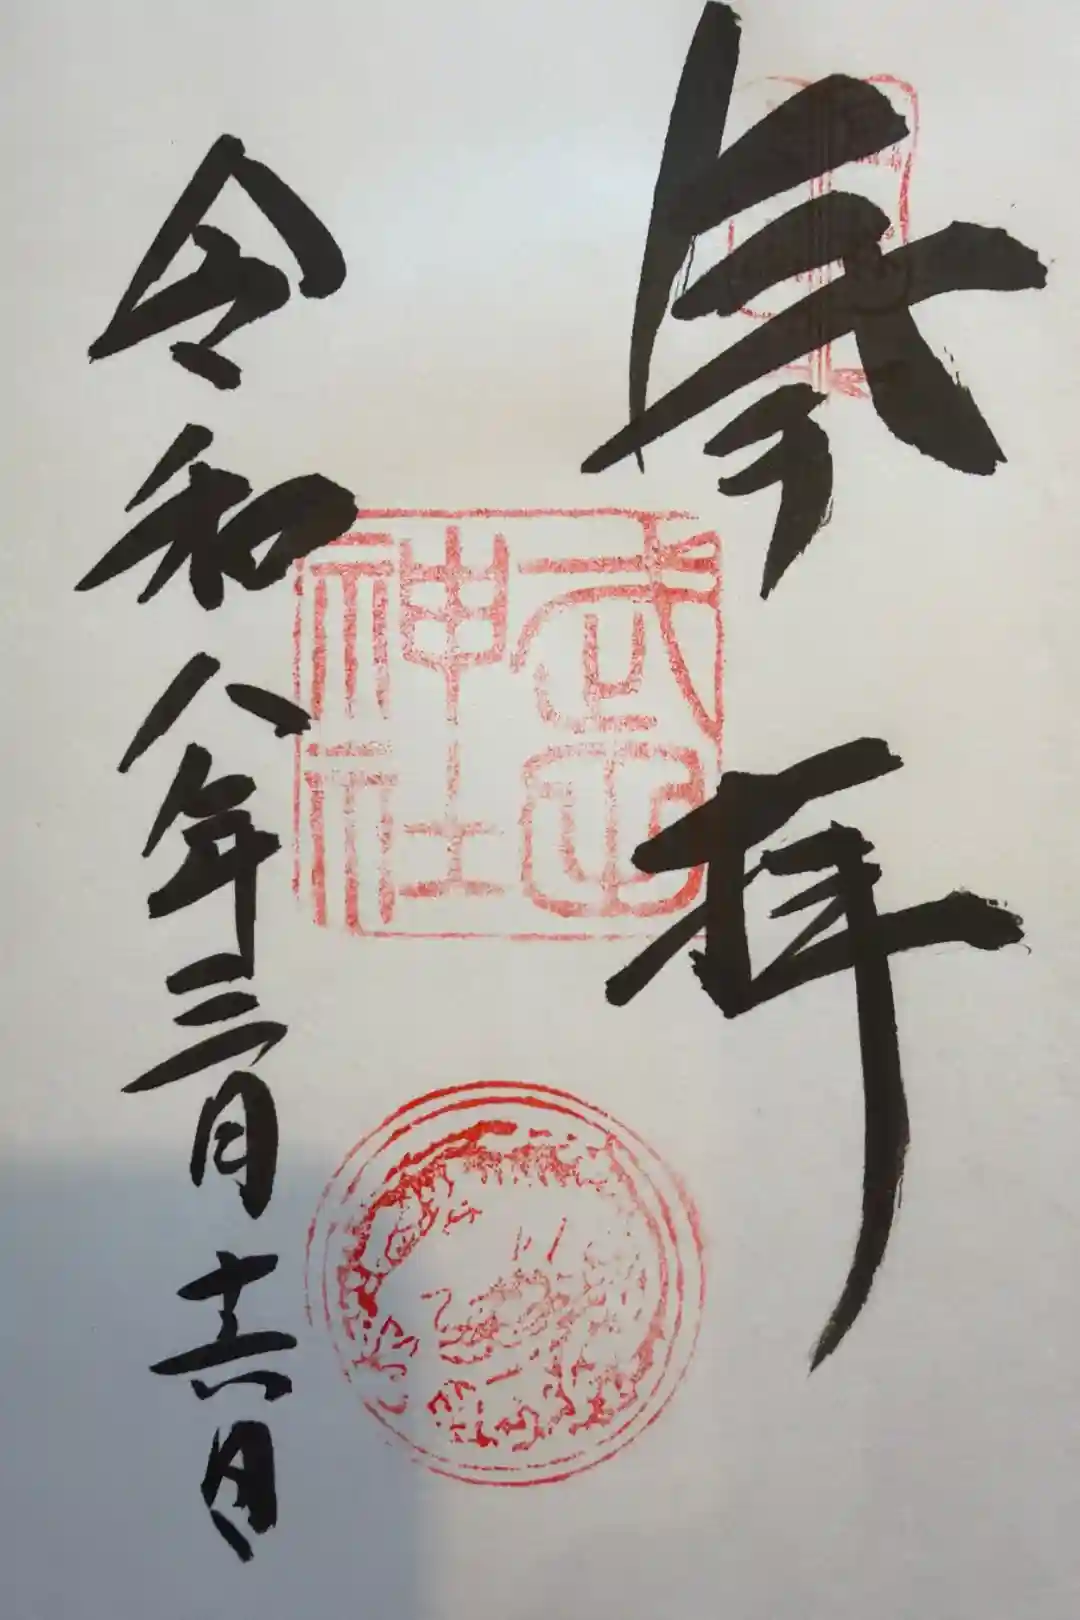 奉拝
武田
神社
令和八年三月十六日